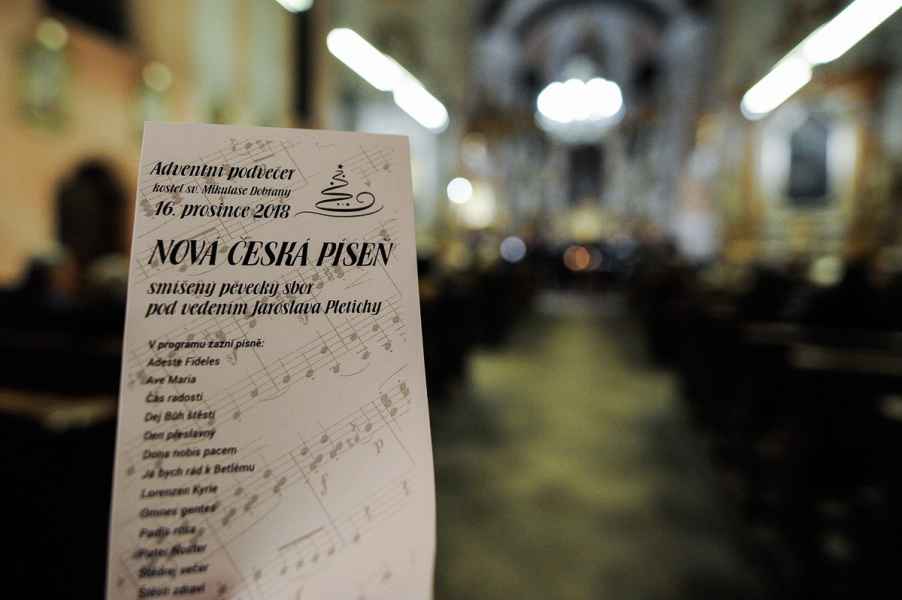 Adventní podvečer
kostel sv. Mikuláše Dobřany
16. prosince 2018
NOVÁ ČESKÁ PÍSEŇ
smíšený pěvecký sbor
pod vedením Jaroslava Pletichy
V programu zazní písně:
Adeste Fideles
Ave Maria
Čas radosti
Dej Bůh štěstí
Den přeslavný
Dona nobis pacem
Já bych rád k Betlému
Lorenzen Kyrie
Omnes gentes
Padla rosa
Pater Noster
Štědrej večer
Štěstí zdraví